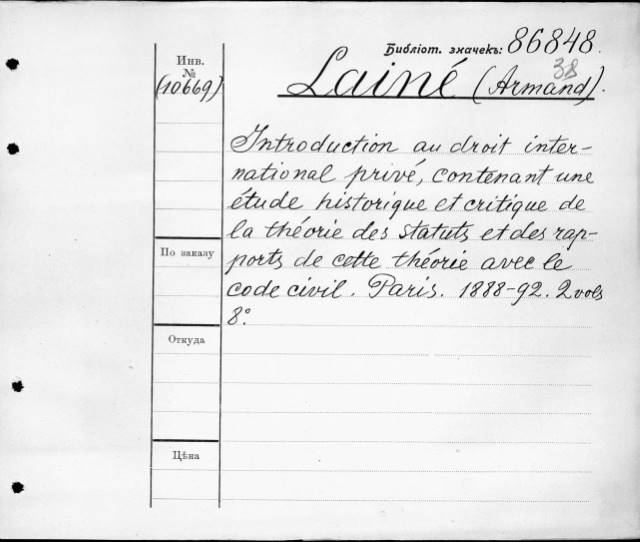 Библіот. значекъ: 86848.
38
Инв.
№
(10669)
Lainé (Armand).
Introduction au droit inter-
national privé, contenant une
étude historique et critique de
la théorie des statuts et des rap-
ports de cette théorie avec le
code civil. Paris. 1888-92. 2 vols
8°.
По заказу
Откуда
Цѣна